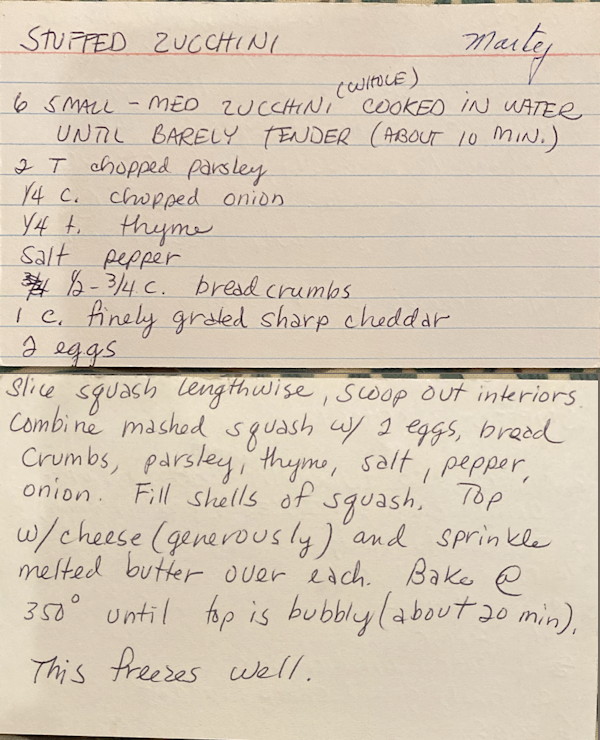 STUFFED ZUCCHINI Marty
6 SMALL - MED ZUCCHINI (WHOLE) COOKED IN WATER
UNTIL BARELY TENDER (ABOUT 10 MIN.)
2 T chopped parsley
1/4 c. chopped onion
1/4 t. thyme
Salt pepper
1/2 - 3/4 c. bread crumbs
1 c. finely grated sharp cheddar
2 eggs
Slice squash lengthwise, scoop out interiors.
Combine mashed squash w/ 2 eggs, bread
Crumbs, parsley, thyme, salt, pepper,
onion. Fill shells of squash. Top
w/ cheese (generously) and sprinkle
melted butter over each. Bake @
350° until top is bubbly (about 20 min).
This freezes well.